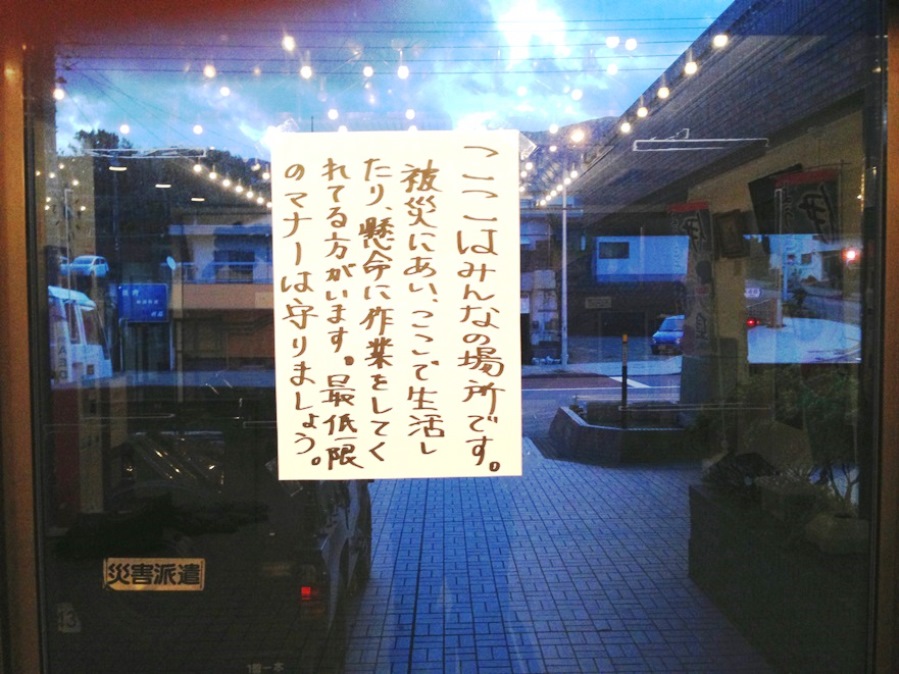 ここはみんなの場所です。
被災にあい、ここで生活し
たり、懸命に作業をしてく
れてる方がいます。最低限
のマナーは守りましょう。
災害派遣